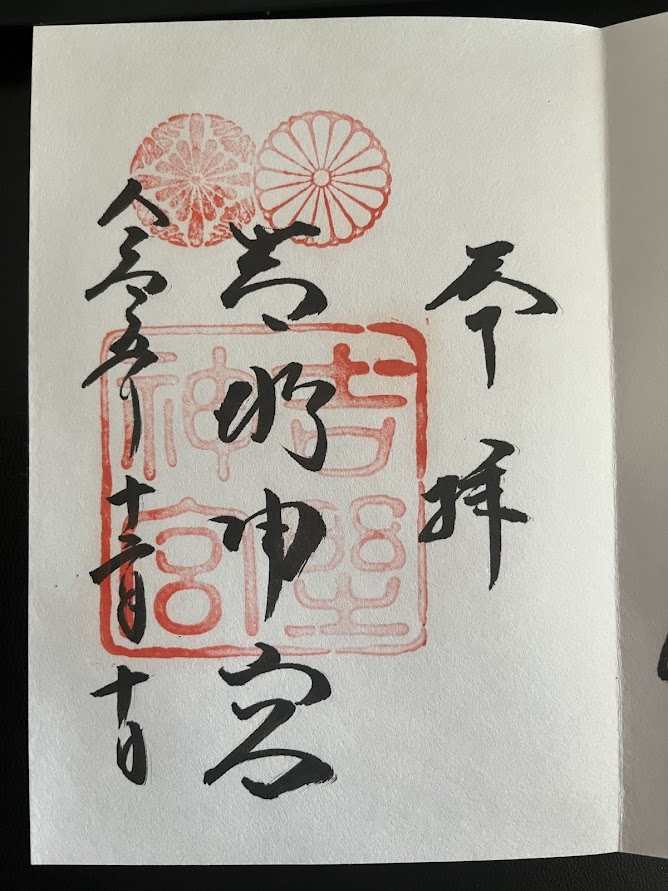 奉拝
吉野神宮
吉野
神宮
令和五年十二月十日